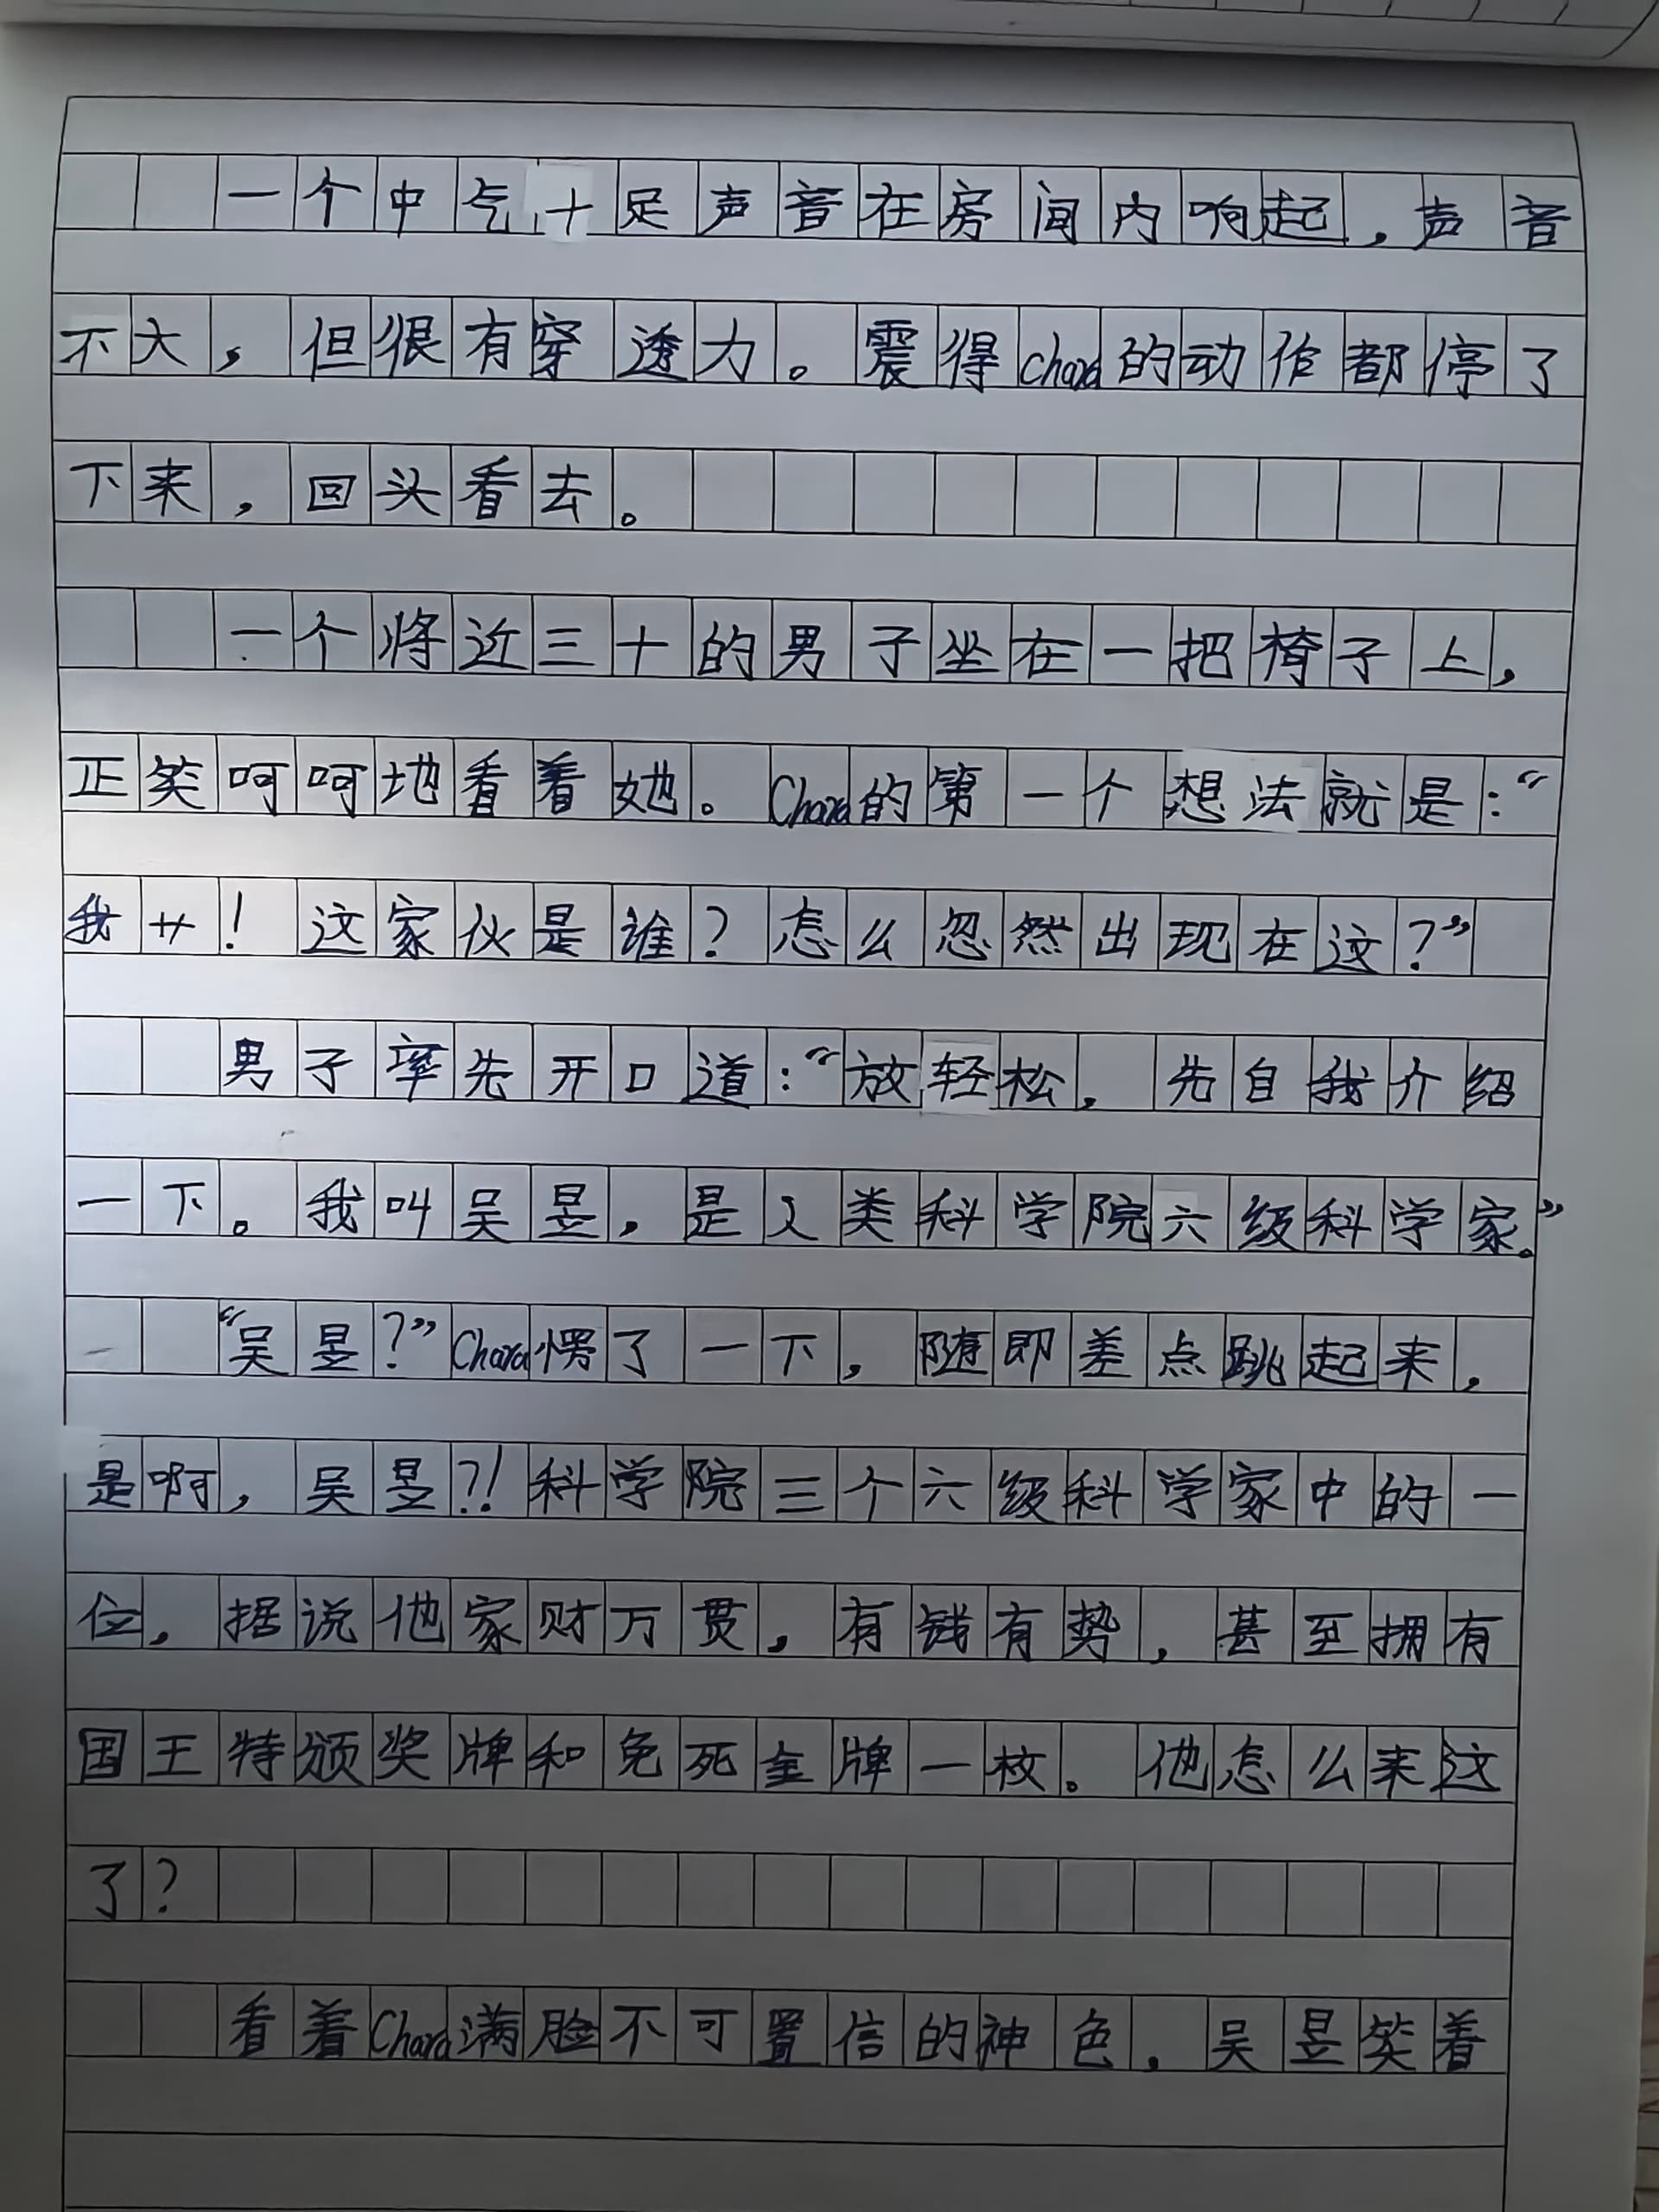 一个中气十足声音在房间内响起，声音
不大，但很有穿透力。震得Chara的动作都停了
下来，回头看去。
一个将近三十的男子坐在一把椅子上，
正笑呵呵地看着她。Chara的第一个想法就是：“
我艹！这家伙是谁？怎么忽然出现在这？”
男子率先开口道：“放轻松，先自我介绍
一下。我叫吴昱，是人类科学院六级科学家。”
“吴昱？”Chara愣了一下，随即差点跳起来，
是啊，吴昱？！科学院三个六级科学家中的一
位，据说他家财万贯，有钱有势，甚至拥有
国王特颁奖牌和免死金牌一枚。他怎么来这
了？
看着Chara满脸不可置信的神色，吴昱笑着